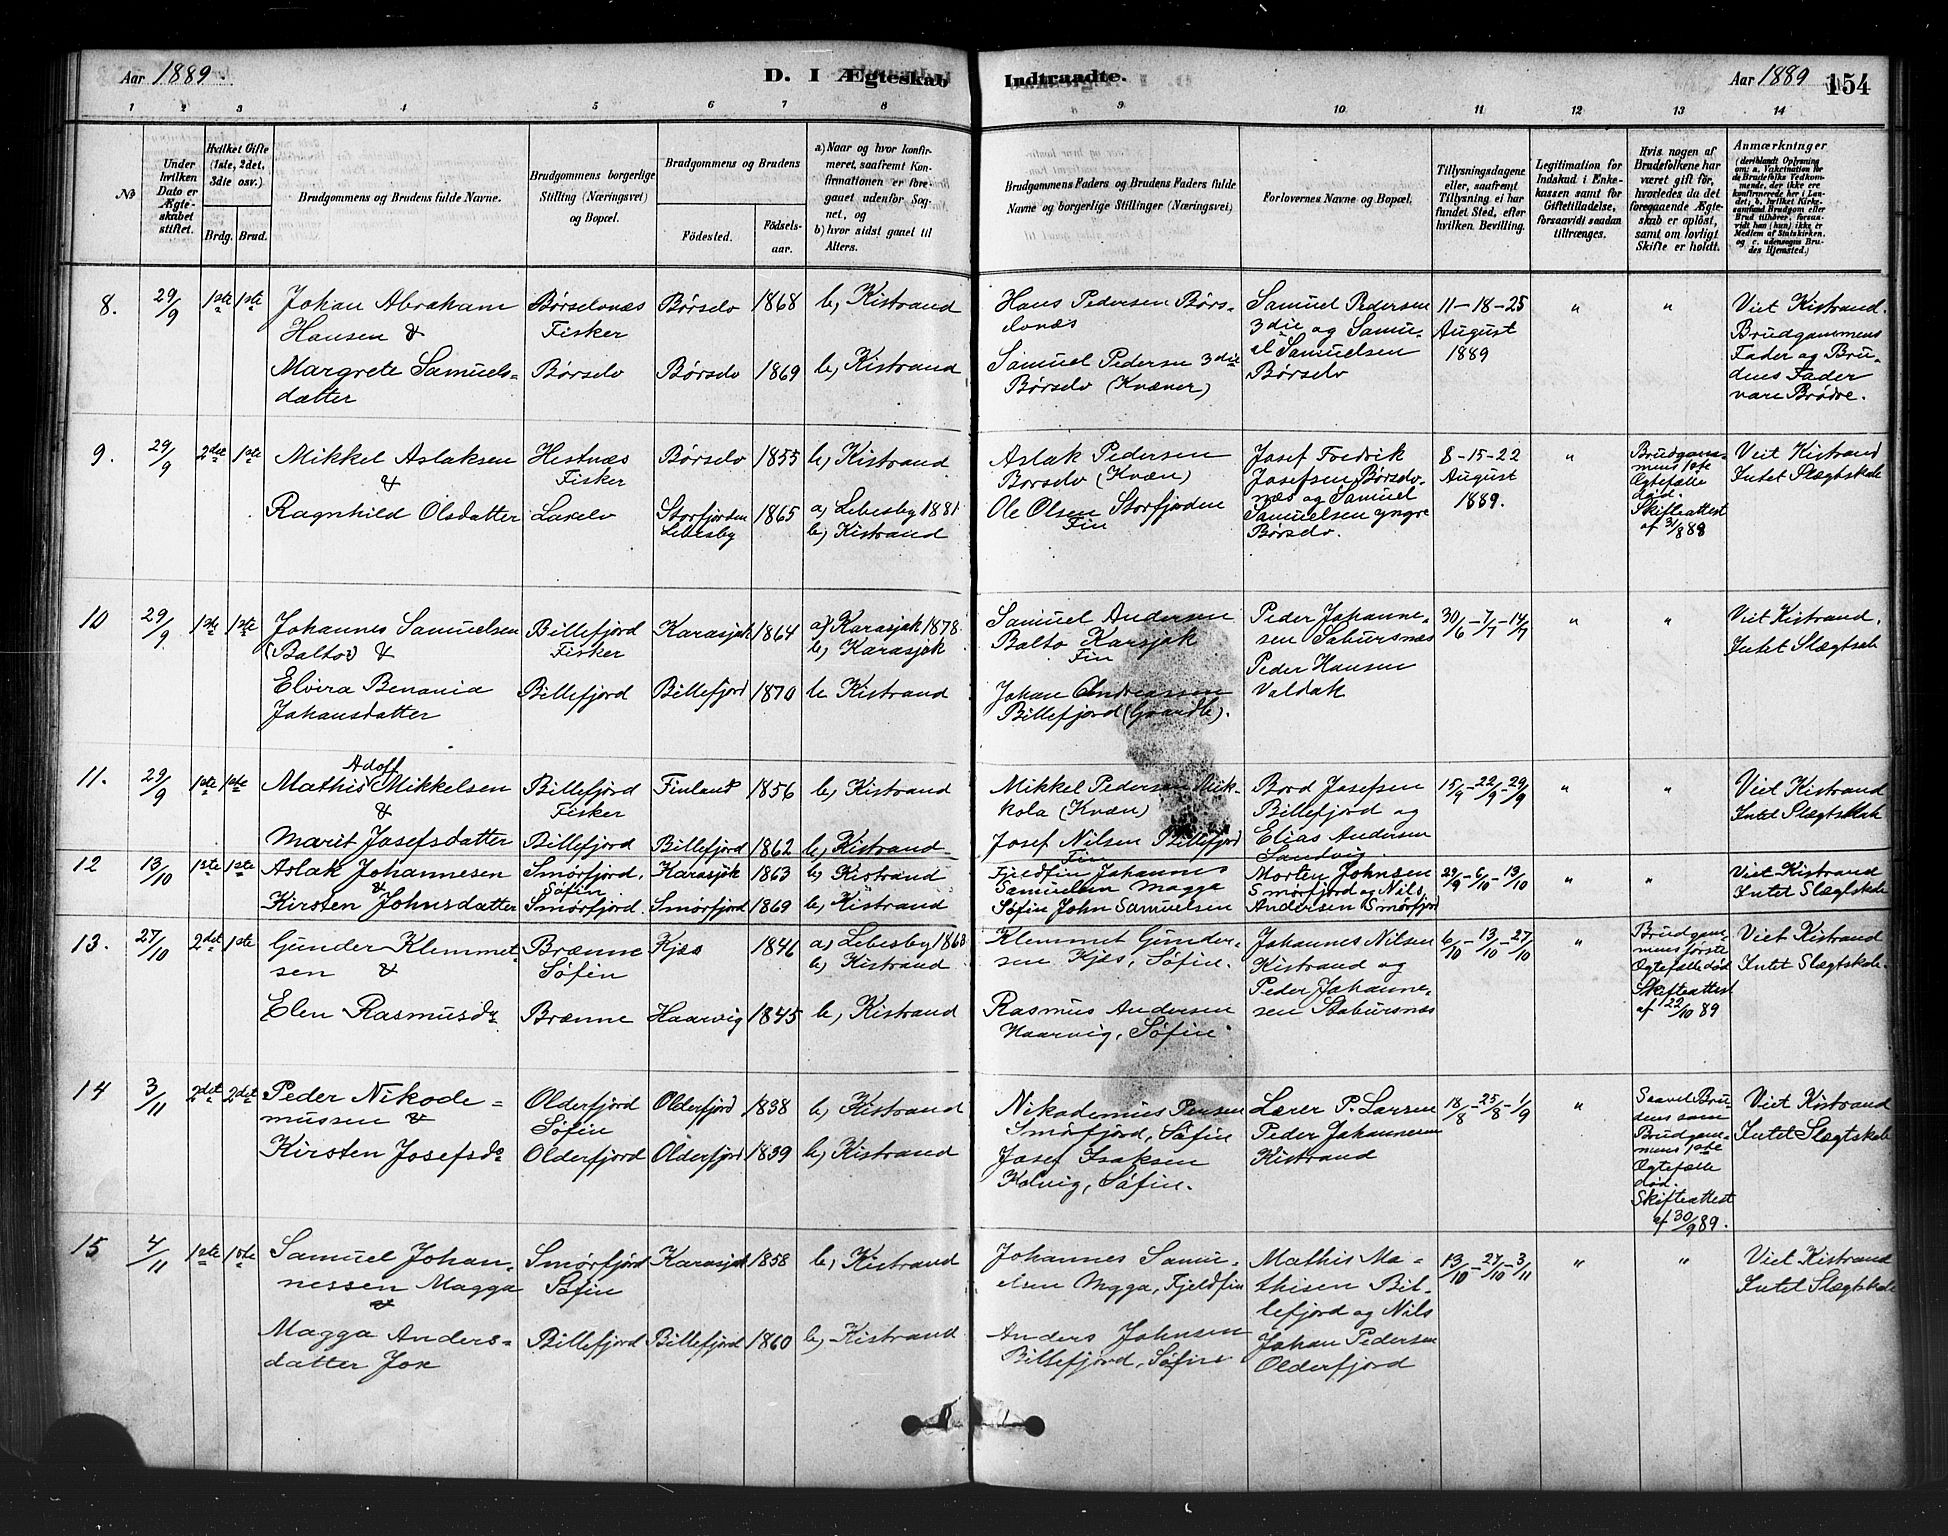 Aar 1889.
D. I Ægteskab Indtraadte.
Aar 1889
154
1 2 3 4 5 6 7 8 9 10 11 12 13 14
No
Under hvilken Dato er Ægteskabet stiftet.
Hvilket Gifte (1ste, 2det, 3die osv.)
Brdg. Brud.
Brudgommens og Brudens fulde Navne.
Brudgommens borgerlige Stilling (Næringsvei) og Bopæl.
Brudgommens og Brudens
Fødested.
Fødsels-aar.
a) Naar og hvor konfirmeret, saafremt Konfirmationen er foregaaet udenfor Sognet, og
b) hvor sidst gaaet til Alters.
Brudgommens Faders og Brudens Faders fulde Navne og borgerlige Stillinger (Næringsvei)
Forlovernes Navne og Bopæl.
Tillysningsdagene eller, saafremt Tillysning ei har fundet Sted, efter hvilken Bevilling.
Legitimation for Indskud i Enkekassen samt for Giftetilladelse, forsaavidt saadan tiltrænges.
Hvis nogen af Brudefolkene har været gift før, hvorledes da det foregaaende Ægteskab er opløst, samt om lovligt Skifte er holdt.
Anmærkninger
(deriblandt Oplysning om: a. Vakcination for de Brudefolks Vedkommende, der ikke ere konfirmerede her i Landet; b. hvilket Kirkesamfund Brudgom eller Brud tilhører, forsavidt han (hun) ikke er Medlem af Statskirken, og c. udensogns Brudes Hjemsted.)
8. 29/9 1ste 1ste Johan Abraham Hansen & Børselvnæs Fisker Børselv 1868 b, Kistrand Hans Pedersen Børselvnæs Samuel Pedersen 3die og Samuel Samuelsen Børselv 11-18-25 August 1889 " " Viet Kistrand. Brudgommens Fader og Brudens Fader vare Brødre.
Margrete Samuelsdatter Børselv Børselv 1869 b, Kistrand Samuel Pedersen 3die Børselv (Kvæner)
9. 29/9 2det 1ste Mikkel Aslaksen & Hestnæs Fisker Børselv 1855 b, Kistrand Aslak Pedersen Børselv (Kvæn) Josef Fredrik Josefsen Børselvnæs og Samuel Samuelsen yngre Børselv. 8-15-22 August 1889. " Brudgommens 1ste Ægtefælle død. Skifteattest af 31/8 89 Viet Kistrand Intet Slægtskab
Ragnhild Olsdatter Laxelv Storfjorden Lebesby 1865 a) Lebesby 1881 b, Kistrand Ole Olsen Storfjorden Fin
10 29/9. 1ste 1ste Johannes Samuelsen (Balto) & Billefjord Fisker Karasjok 1864 a) Karasjok 1878. b, Karasjok Samuel Andersen Balto Karasjok Fin Peder Johannesen Stabursnæs Peder Hansen Valdak 30/6-7/7-14/7 " " Viet Kistrand. Intet Slægtsab
Elvira Benania Johansdatter Billefjord Billefjord 1870 b Kistrand Johan Andreassen Billefjord
11. 29/9 1ste 1ste Mathis Adolf Mikkelsen & Billefjord Fisker Finland 1856 b, Kistrand Mikkel Pedersen Niikkola (Kvæn) Bord Josefsen Billefjord og Elias Andersen Sandvig. 15/9-22/9-29/9 " " Viet Kistrand Intet Slægtskab
Marit Josefsdatter Billefjord Billefjord 1862 b, Kistrand Josef Nilsen Billefjord Fin
12 13/10 1ste 1ste Aslak Johannesen & Smørfjord, Søfin Karasjok 1863 b, Kistrand Fjeldfin Johannes Samuelsen Magga Morten Johnsen Smørfjord og Nils Andersen Smørfjord 29/9-6/10-13/10 " " Viet Kistrand Intet Slægtskab
Kirsten Johnsdatter Smørfjord. Smørfjord 1869 b, Kistrand Søfin John Samuelsen
13. 27/10 2det 1ste Gunder Klemmetsen & Brænne Søfin Kjæs 1846 a) Lebesby b, Kistrand Klemmet Gundersen Kjæs, Søfin. Johannes Nilsen Kistrand og Peder Johannesen Stabursnæs 6/10-13/10-27/10 " Brudgommens første Ægtefælle død Skifteattest af 22/10 89 Viet Kistrand Intet Slægtskab.
Elen Rasmusdr Brænne Haarvig 1845 b, Kistrand Rasmus Andersen Haarvig, Søfin.
14 3/11 2det 2det Peder Nikodemussen & Olderfjord Søfin Olderfjord 1838 b, Kistrand Nikodemus Smørfjord, Søfin Lærer P. Larsen Peder Johannesen Kistrand 18/8-25/8-1/9 " Saavel Brudens som Brudgommens 1ste Ægtefælle død. Skifteattest af 30/9 89. Viet Kistrand Intet Slægtskab
Kirsten Josefsdr Olderfjord Olderfjord 1839 b, Kistrand Josef Isaksen Kolvig, Søfin.
15 4/11 1ste 1ste Samuel Johannessen Magga & Smørfjord Søfin Karasjok 1858 b, Kistrand Johannes Samuelsen Magga, Fjeldfin Mathis Mathisen Billefjord og Nils Johan Pedersen Olderfjord 13/10-27/10-3/11 " " Viet Kistrand Intet Slægtskab
Magga Andersdatter Jox Billefjord Billefjord 1860 b, Kistrand Anders Johnsen Billefjord, Søfin